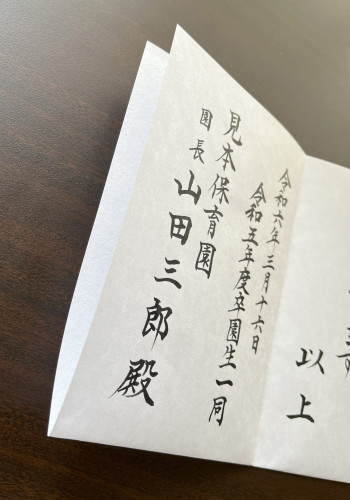 以上
令和六年三月十六日
令和五年度卒園生一同
見本保育園
園長 山田三郎殿